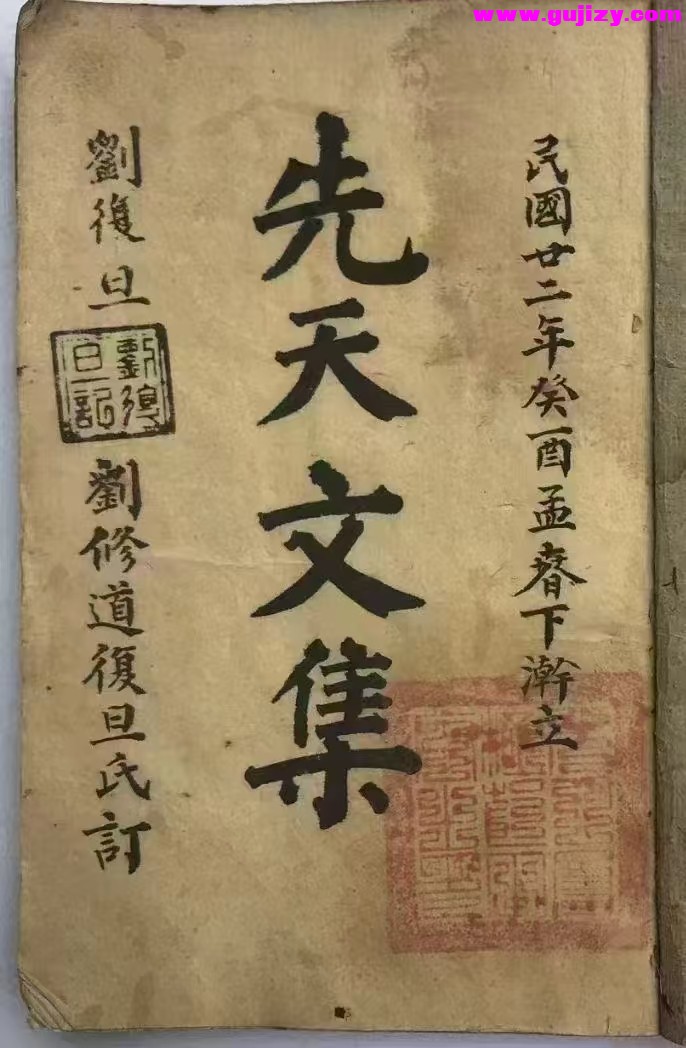 www.gujizy.com
民國廿二年癸酉孟春下澣立
先天文集
劉復旦
劉復旦記
劉修道復旦氏訂